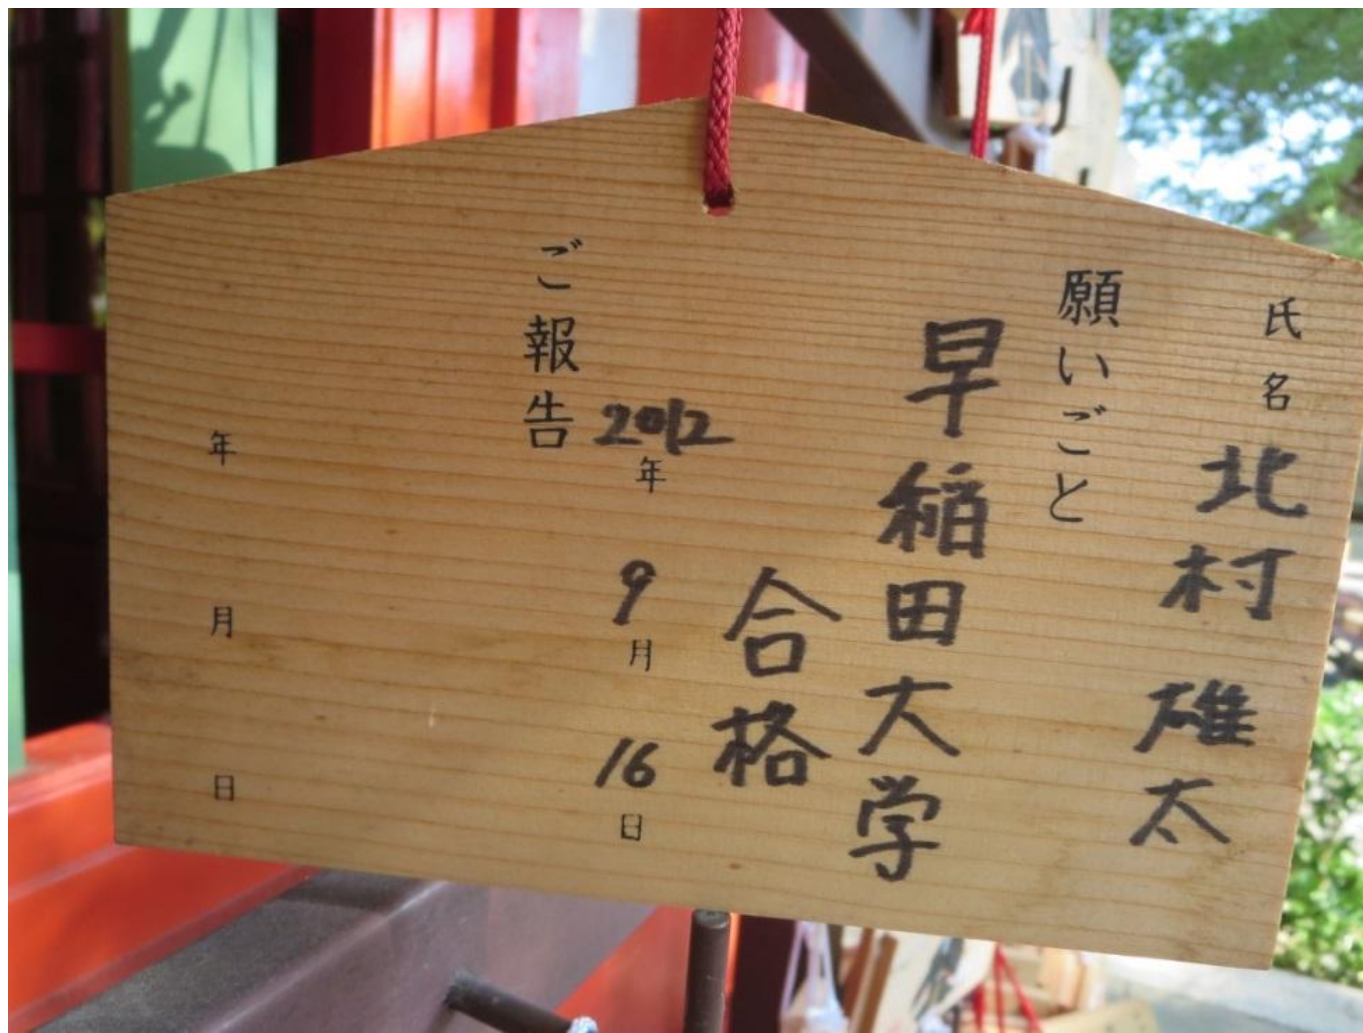 氏名 北村 雄太
願いごと
早稲田大学
合格
2012年 9月 16日
ご報告
年 月 日